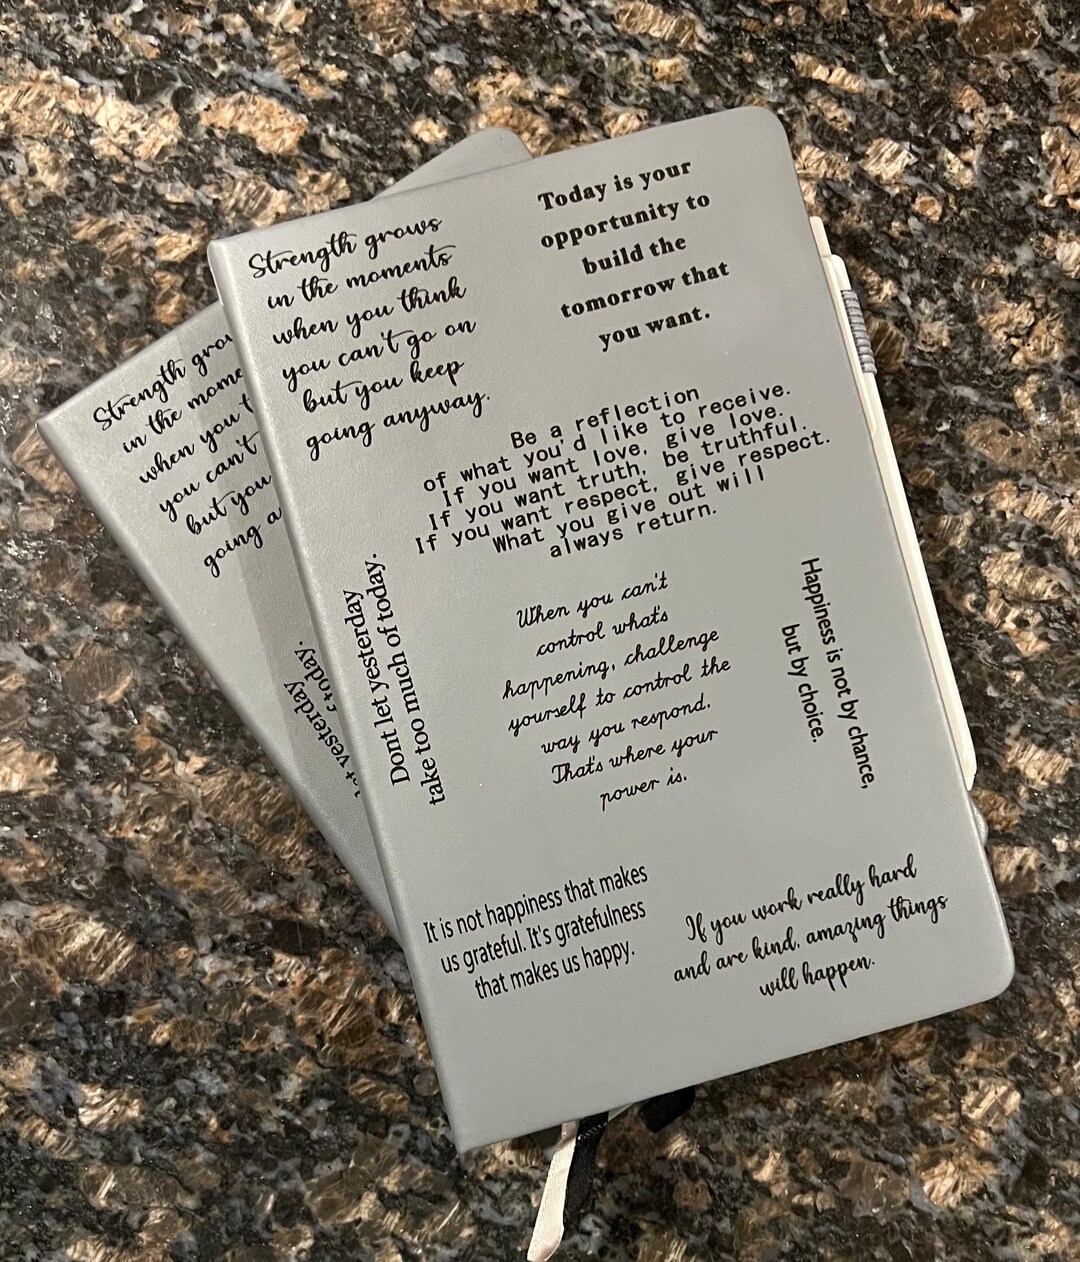 Strength grows
in the moments
when you think
you can't go on
but you keep
going anyway.
Today is your
opportunity to
build the
tomorrow that
you want.
Be a reflection
of what you'd like to receive.
If you want love, give love.
If you want truth, be truthful.
If you want respect, give respect.
What you give out will
always return.
Dont let yesterday
take too much of today.
When you can't
control what's
happening, challenge
yourself to control the
way you respond.
That's where your
power is.
Happiness is not by chance,
but by choice.
It is not happiness that makes
us grateful. It's gratefulness
that makes us happy.
If you work really hard
and are kind, amazing things
will happen.
Strength
in the
when you
you can't
but you
going
yesterday
today.